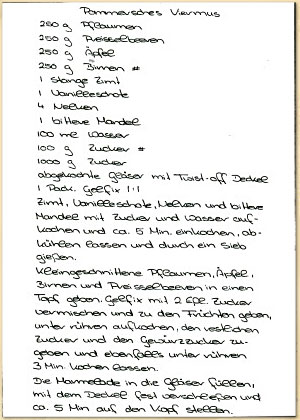 Pommersches Viermus
250 g Pflaumen
250 g Preisselbeeren
250 g Äpfel
250 g Birnen *
1 Stange Zimt
1 Vanilleschote
4 Nelken
1 bittere Mandel
100 ml Wasser
100 g Zucker *
1000 g Zucker
abgekochte Gläser mit Twist-off Deckel
1 Pack. Gelfix 1:1
Zimt, Vanilleschote, Nelken und bittere
Mandel mit Zucker und Wasser auf-
kochen und ca. 5 Min. einkochen, ab-
kühlen lassen und durch ein Sieb
gießen.
Kleingeschnittene Pflaumen, Äpfel,
Birnen und Preisselbeeren in einen
Topf geben. Gelfix mit 2 Eßl. Zucker
vermischen und zu den Früchten geben,
unter rühren aufkochen, den restlichen
Zucker und den Gewürzzucker zu-
geben und ebenfalls unter rühren
3 Min. kochen lassen.
Die Marmelade in die Gläser füllen,
mit dem Deckel fest verschließen und
ca. 5 Min auf den Kopf stellen.